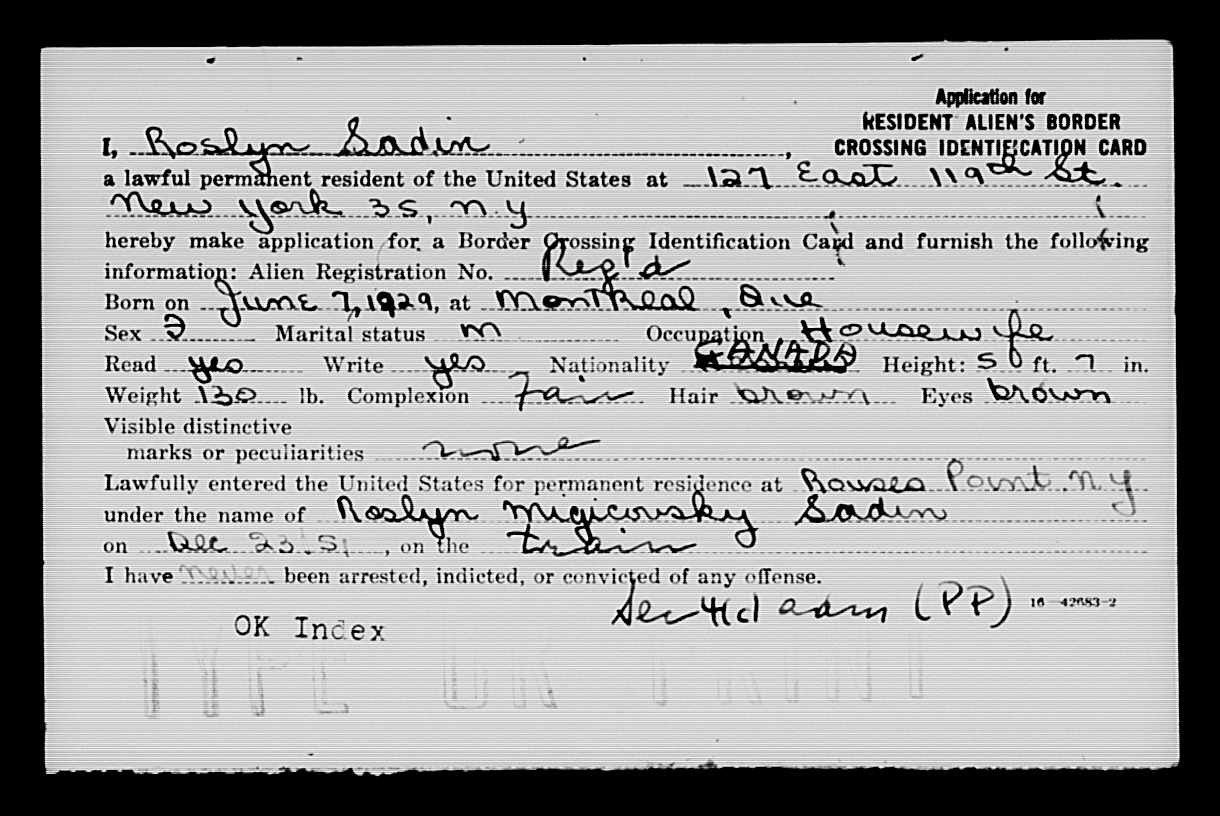 Application for
RESIDENT ALIEN'S BORDER
CROSSING IDENTIFICATION CARD
I, Roslyn Sadin,
a lawful permanent resident of the United States at 127 East 119th St.
New York 35, N.Y
hereby make application for a Border Crossing Identification Card and furnish the following
information: Alien Registration No. Reg'd
Born on June 7, 1929, at Montreal, Que
Sex F Marital status M Occupation Housewife
Read yes Write yes Nationality CANADA Height: 5 ft. 7 in.
Weight 130 lb. Complexion Fair Hair brown Eyes brown
Visible distinctive
marks or peculiarities none
Lawfully entered the United States for permanent residence at Rouses Point N Y
under the name of Roslyn Migicovsky Sadin
on Dec 23. 51, on the train
I have never been arrested, indicted, or convicted of any offense.
Sec 4(c) adm (PP) 16—42683-2
OK Index
TYPE OR PRINT